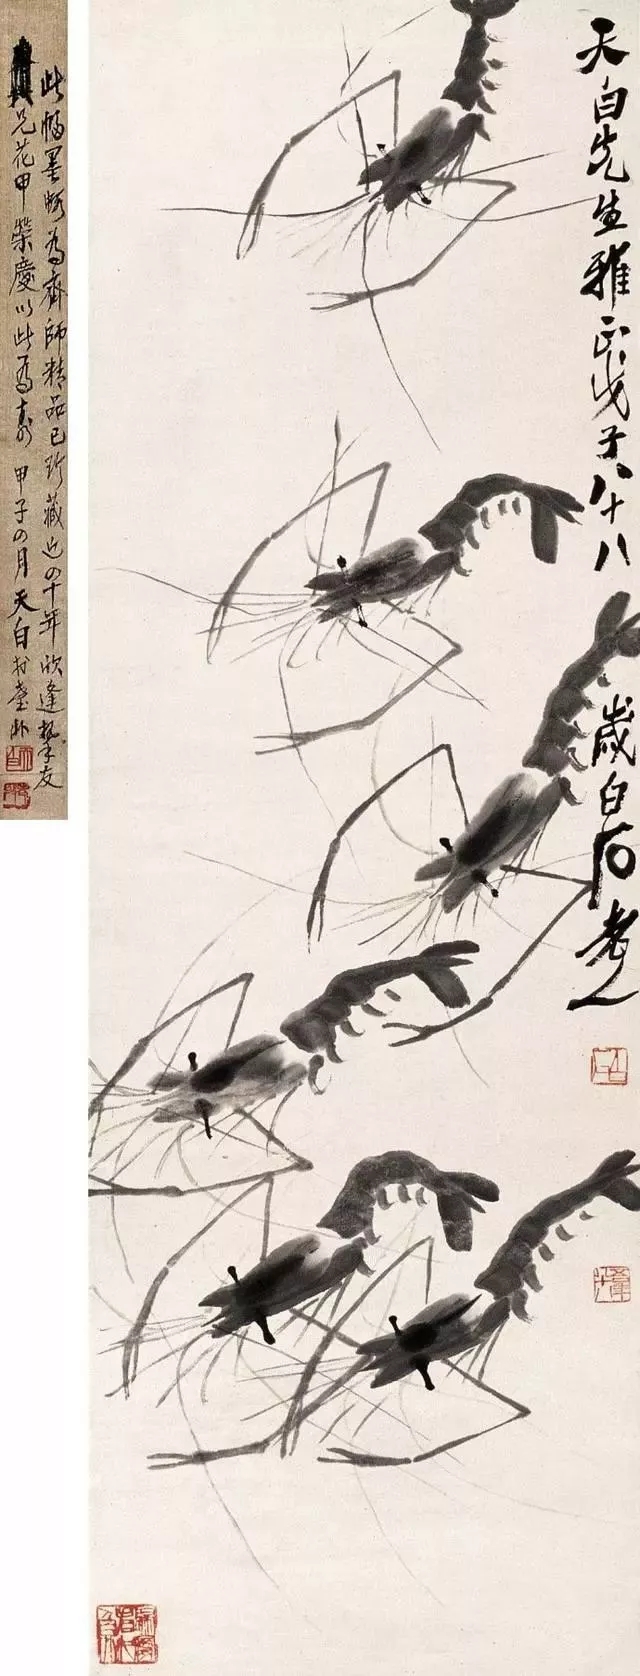 天白先生雅正戊子八十八歲白石老人
白石
此幅墨蝦為齊師精品已珍藏近四十年欣逢摯友
兄花甲榮慶以此為壽 甲子四月天白於臺北